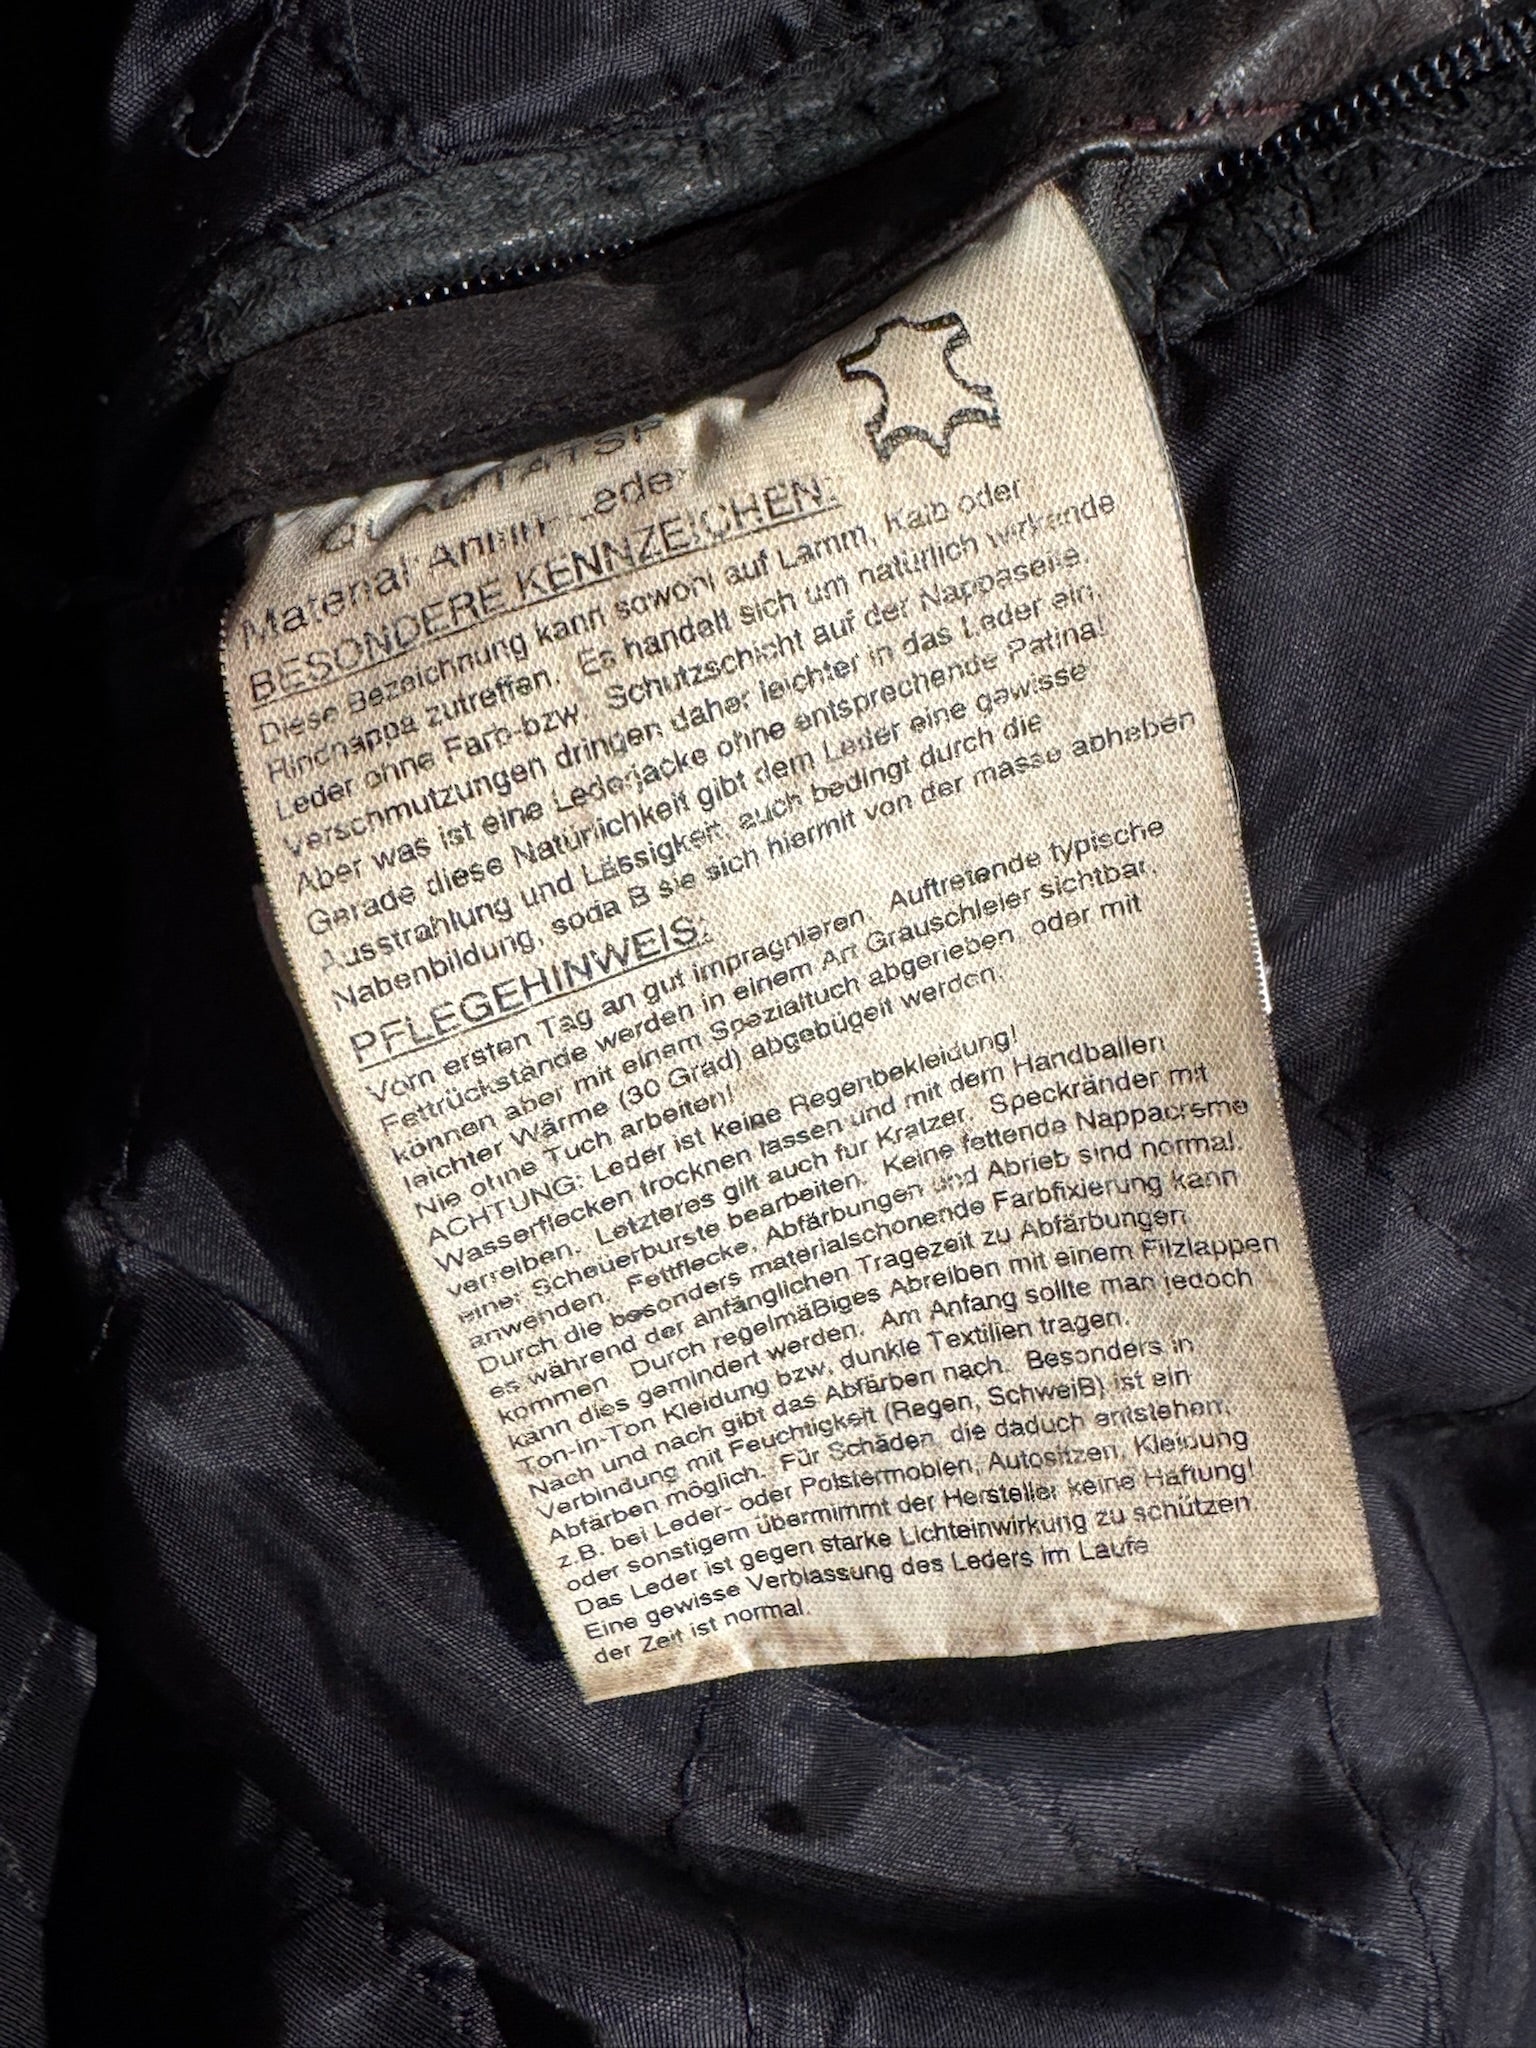 Material: Anilin-Leder
BESONDERE KENNZEICHEN:
Diese Bezeichnung kann sowohl auf Lamm, Kalb oder
Rindnappa zutreffen. Es handelt sich um natürlich wirkende
Leder ohne Farb-bzw. Schutzschicht auf der Nappaseite.
Verschmutzungen dringen daher leichter in das Leder ein.
Aber was ist eine Lederjacke ohne entsprechende Patina!
Gerade diese Natürlichkeit gibt dem Leder eine gewisse
Ausstrahlung und Lässigkeit, auch bedingt durch die
Nabenbildung, soda B sie sich hiermit von der masse abheben
PFLEGEHINWEIS:
Vom ersten Tag an gut imprägnieren. Auftretende typische
Fettrückstände werden in einem Art Grauschleier sichtbar,
können aber mit einem Spezialtuch abgerieben, oder mit
leichter Wärme (30 Grad) abgebügelt werden.
Nie ohne Tuch arbeiten!
ACHTUNG: Leder ist keine Regenbekleidung!
Wasserflecken trocknen lassen und mit dem Handballen
verreiben. Letzteres gilt auch für Kratzer. Speckränder mit
einer Scheuerburste bearbeiten. Keine fettende Nappacreme
anwenden. Fettflecke, Abfärbungen und Abrieb sind normal.
Durch die besonders materialschonende Farbfixierung kann
es während der anfänglichen Tragezeit zu Abfärbungen
kommen. Durch regelmäßiges Abreiben mit einem Filzlappen
kann dies gemindert werden. Am Anfang sollte man jedoch
Ton-in-Ton Kleidung bzw. dunkle Textilien tragen.
Nach und nach gibt das Abfärben nach. Besonders in
Verbindung mit Feuchtigkeit (Regen, Schweiß) ist ein
Abfärben möglich. Für Schäden, die daduch entstehen,
z.B. bei Leder- oder Polstermöblen, Autositzen, Kleidung
oder sonstigem übermimmt der Hersteller keine Haftung!
Das Leder ist gegen starke Lichteinwirkung zu schützen.
Eine gewisse Verblassung des Leders im Laufe
der Zeit ist normal.